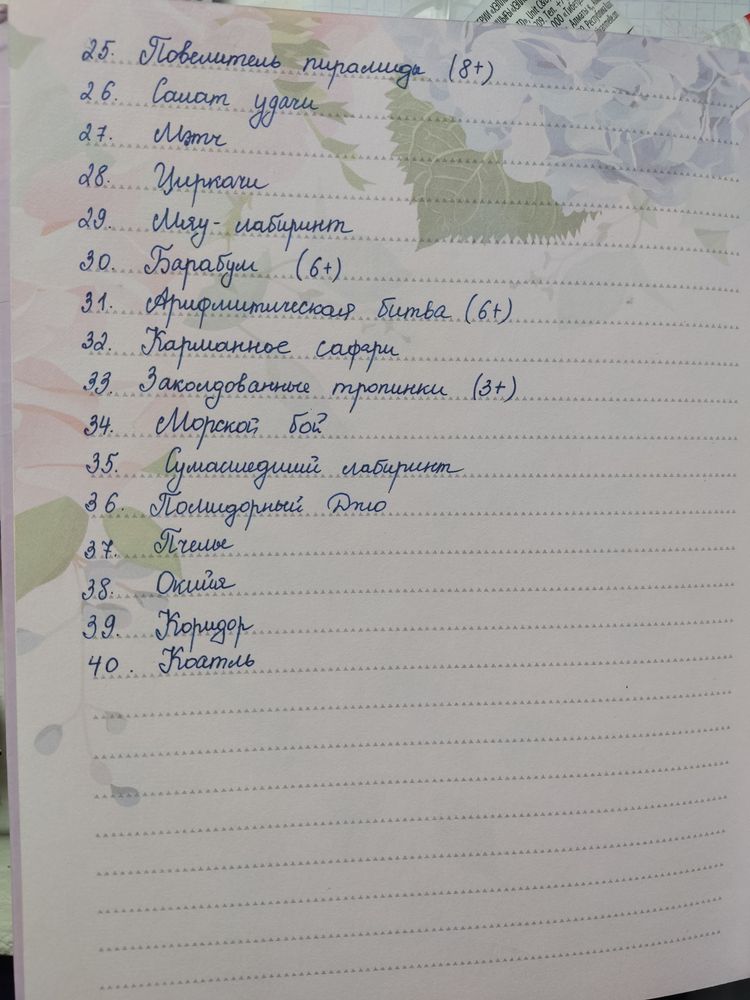 25. Повелитель пирамиды (8+)
26. Салат удачи
27. Мэтч
28. Циркачи
29. Мяу-лабиринт
30. Барабум (6+)
31. Арифмитическая битва (6+)
32. Карманное сафари
33. Заколдованные тропинки (3+)
34. Морской бой
35. Сумасшедший лабиринт
36. Помидорный Джо
37. Пчелы
38. Окийя
39. Коридор
40. Коатль